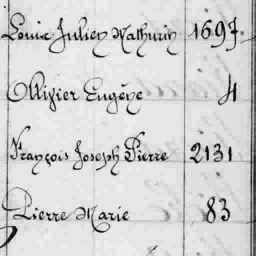 Louis Julien Mathurin 1697
Ollivier Eugène 4
François Joseph Pierre 2131
Pierre Marie 83